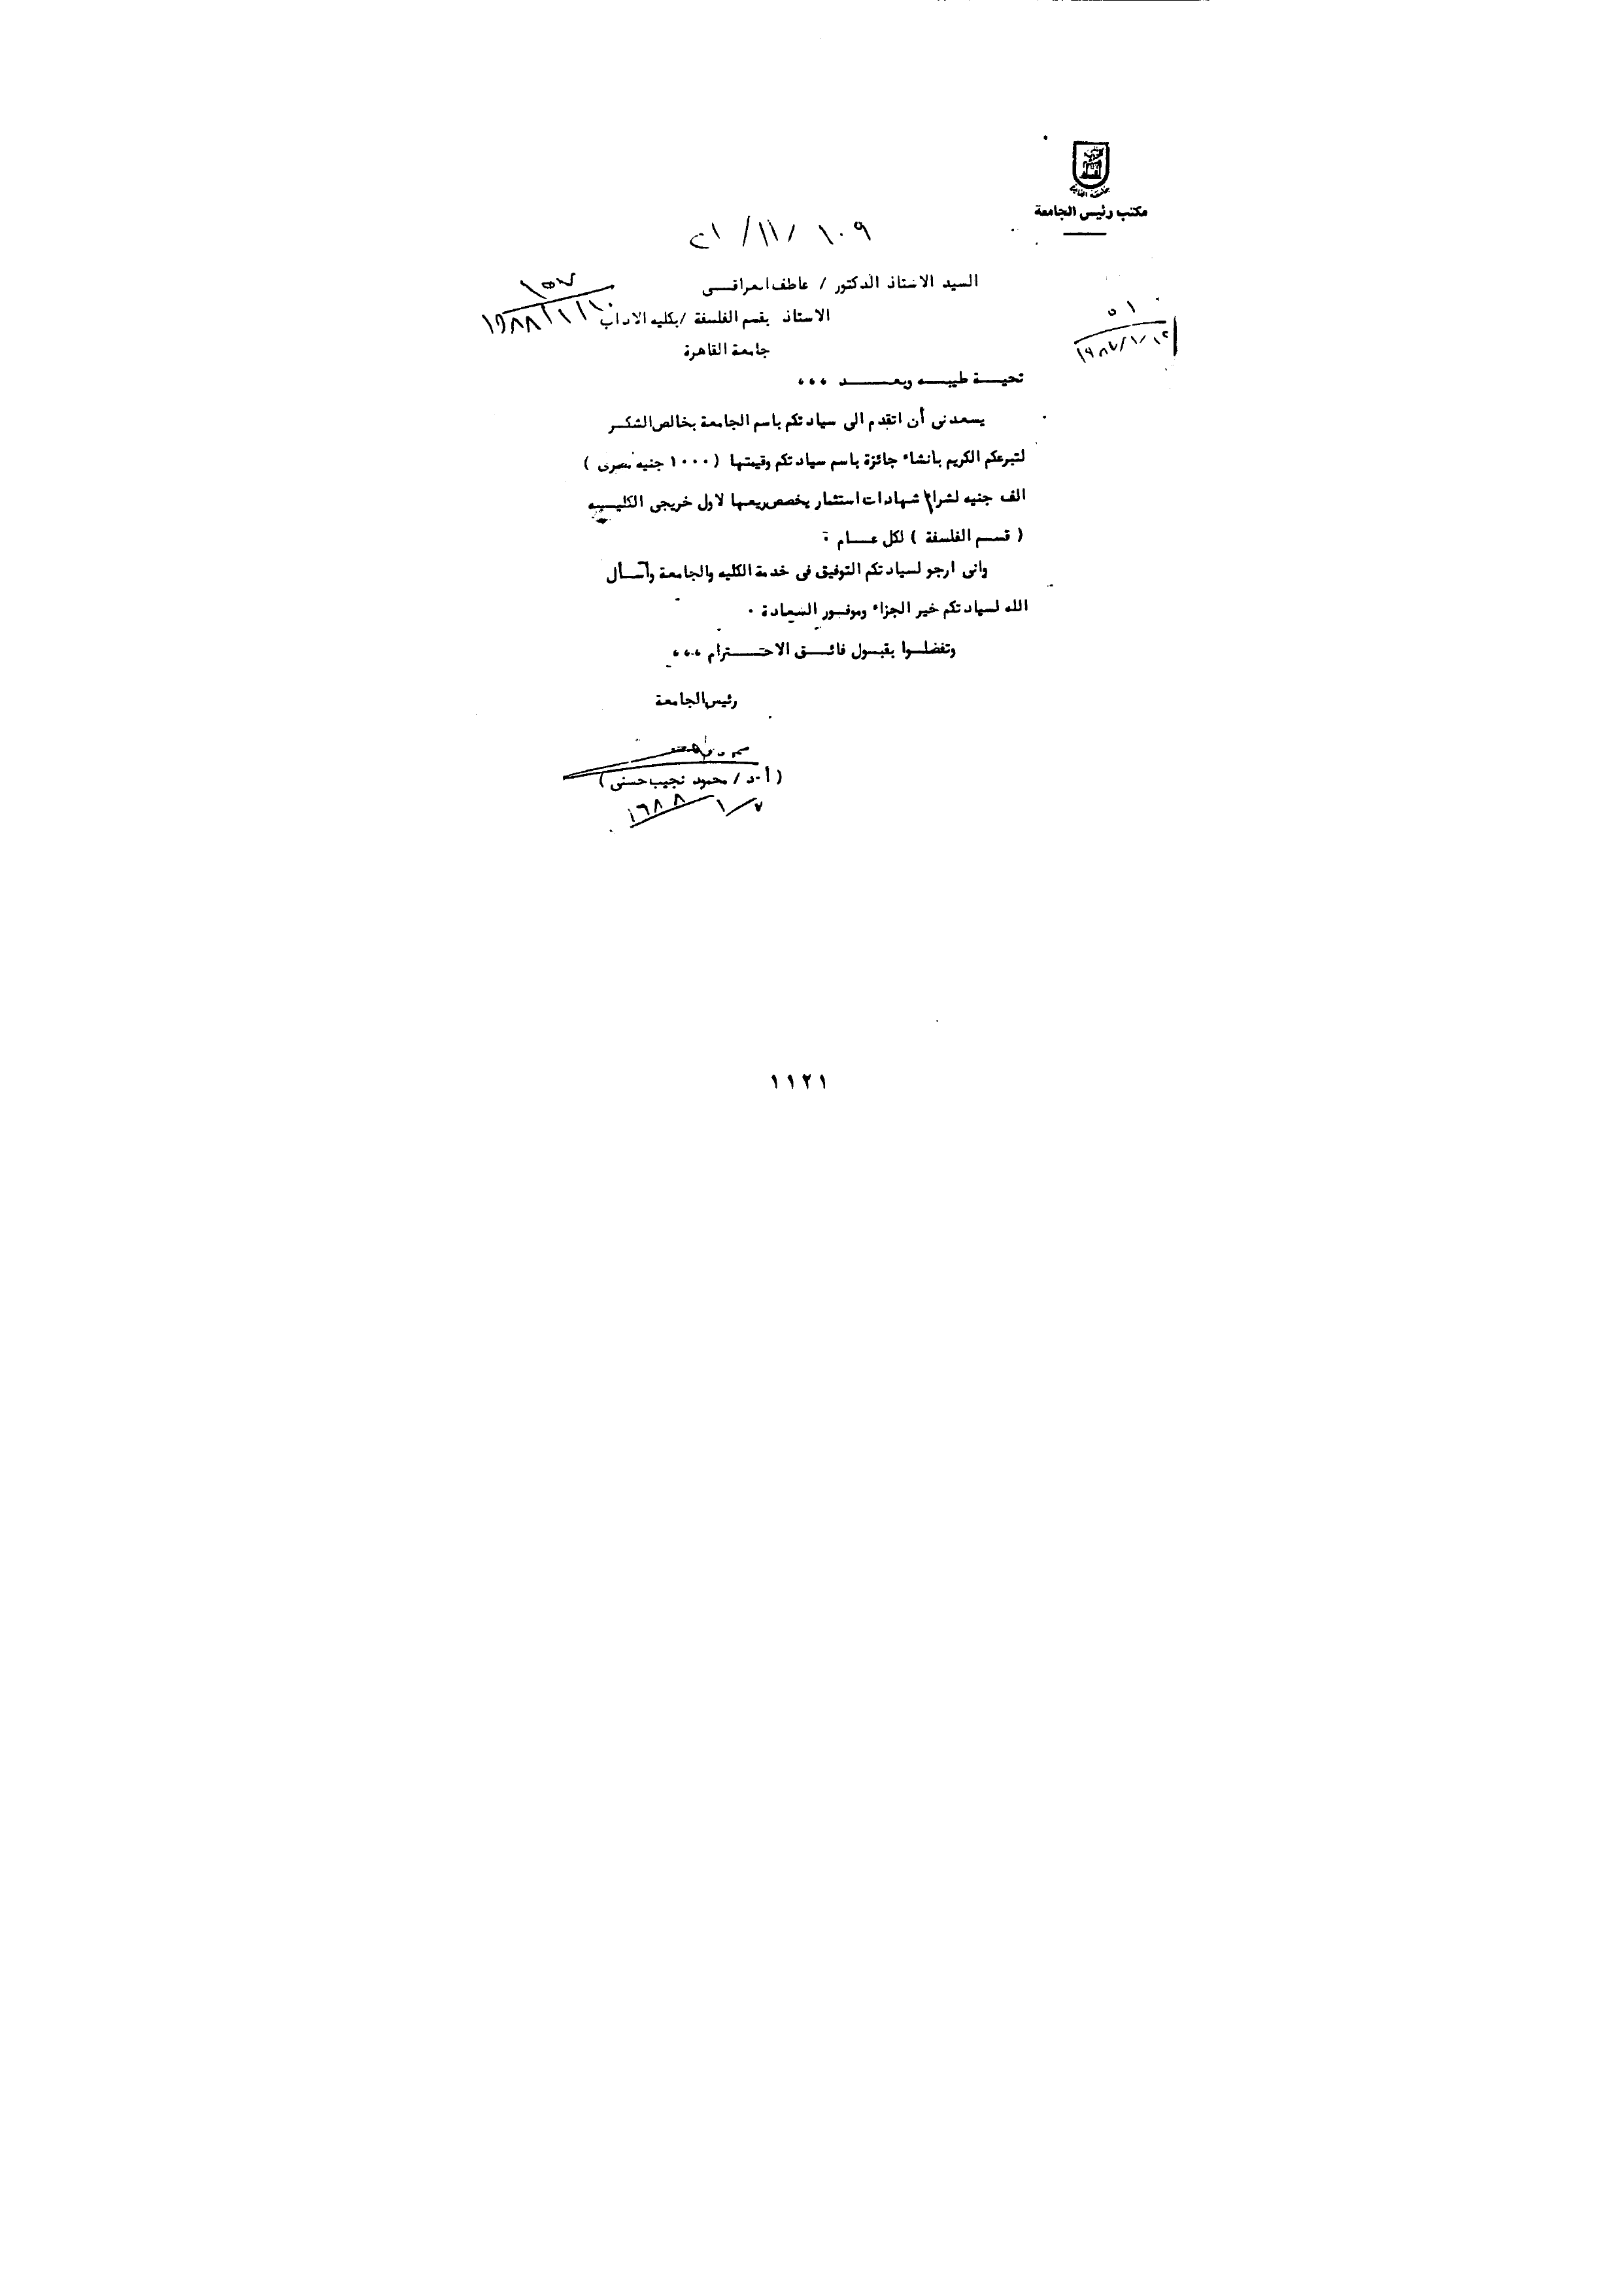 جامعة القاهرة
مكتب رئيس الجامعة
١٠٩ /١١/ ٢١
السيد الاستاذ الدكتور / عاطف العراقــــى
١٥٧
١٩٨٨/١/١٠
الاستاذ بقسم الفلسفة /بكليه الاداب
٥١
١٩٨٧/١/١٢
جامعة القاهرة
تحيـــة طيبـــه وبعــــــد ،،،
يسعدنى أن اتقدم الى سيادتكم باسم الجامعة بخالص الشكــر
لتبرعكم الكريم بانشاء جائزة باسم سيادتكم وقيمتها ( ١٠٠٠ جنيه مصرى )
الف جنيه لشراء شهادات استثمار يخصص ريعها لاول خريجى الكليــه
( قسـم الفلسفة ) لكل عـــام ٠
وانى ارجو لسيادتكم التوفيق فى خدمة الكليه والجامعة وأســأل
الله لسيادتكم خير الجزاء وموفــور السعادة ٠
وتفضلــوا بقبــول فائــــق الاحتــــــرام ،،،
رئيس الجامعة
( أ٠د / محمود نجيب حسنى )
٧/١/١٩٨٨
١١٢١